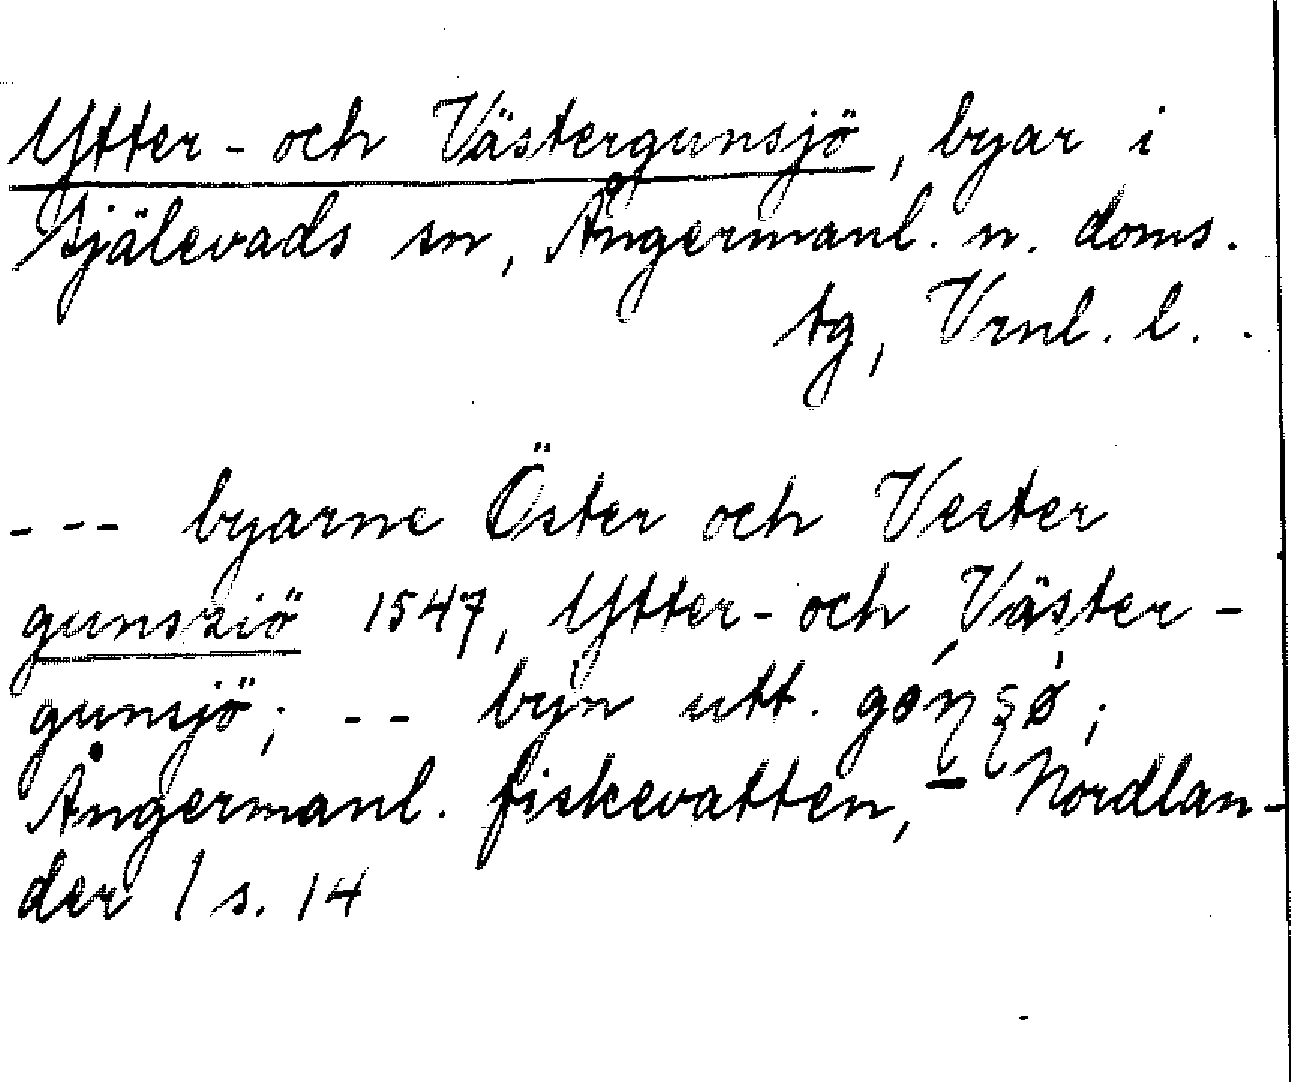 Ytter- och Västergunsjö, byar i
Själevads sn, Ångermanl. n. doms.
tg, Vrnl. l.
--- byarne Öster och Vester
gunsziö 1547, Ytter- och Väster-
gunsjö; -- byn utt.
Ångermanl. fiskevatten, - Nordlan-
der 1 s. 14